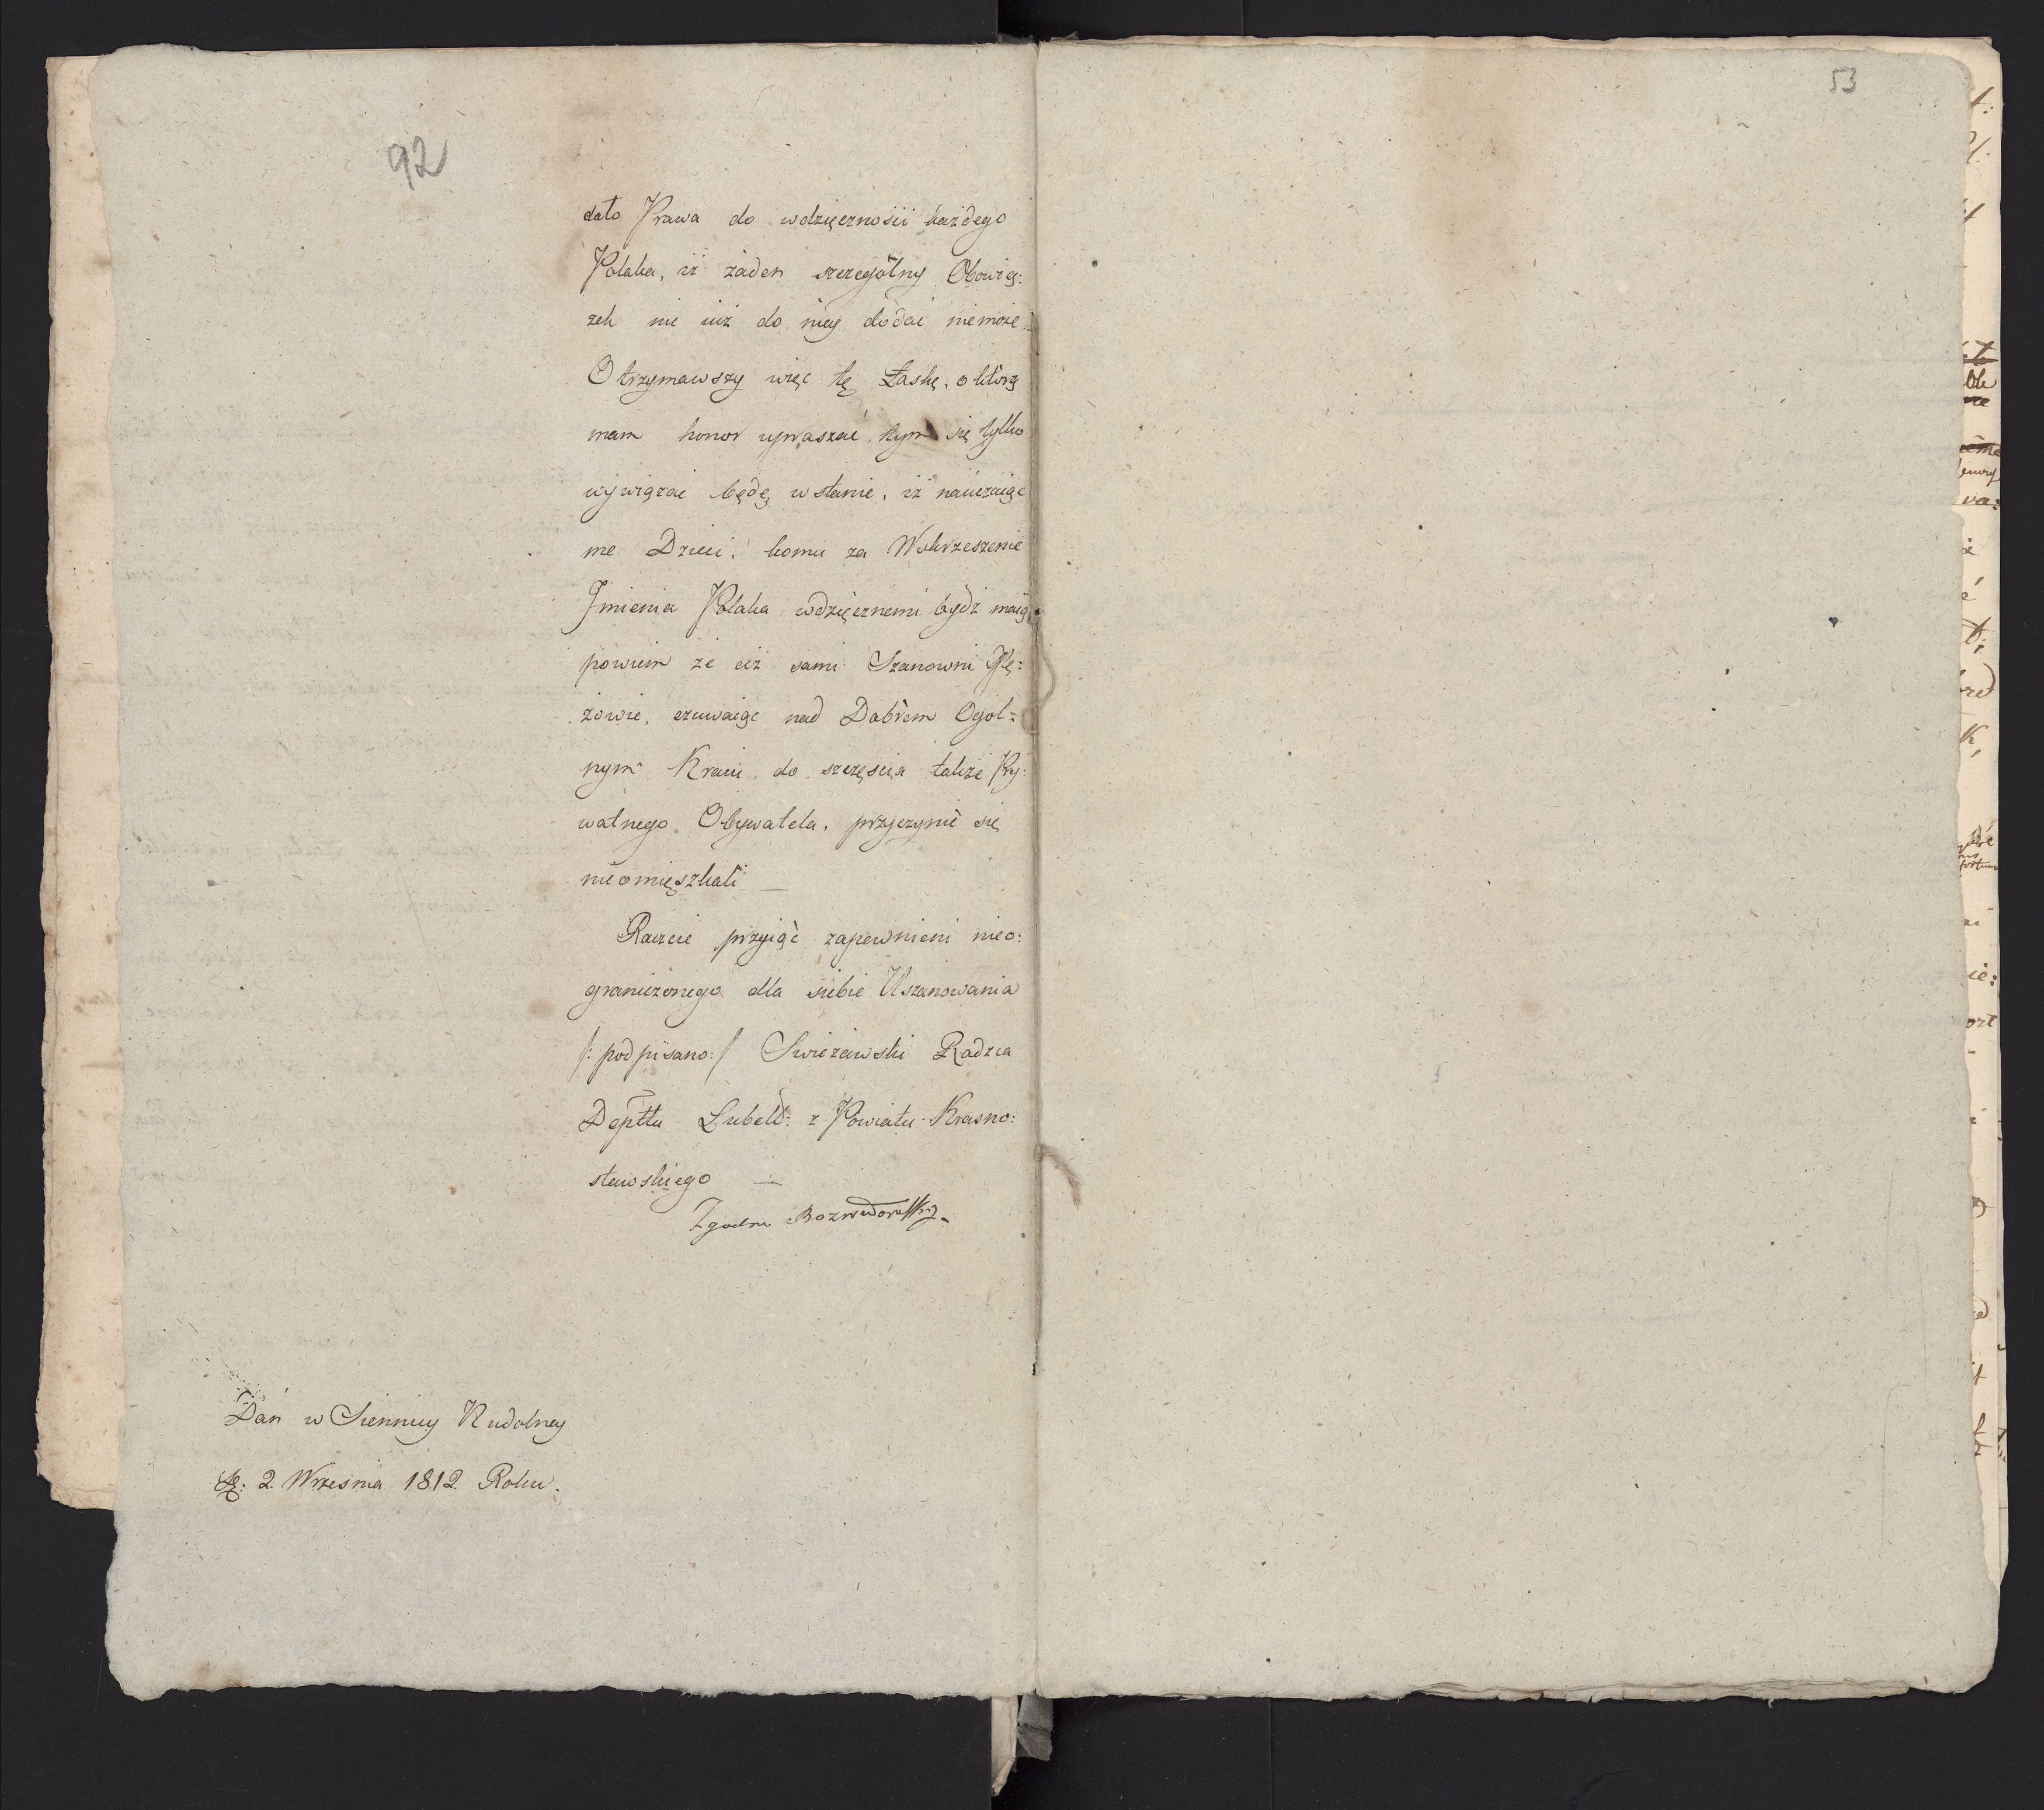 92
53
dało Prawa do wdzięcznosii każdego
Polaka, iż żaden szczególny Obowią:
zek nic iuż do niey dodać niemoże.
Otrzymawszy więc tę Łaskę, o którą
mam honor upraszać, tym się tylko
wywiązać będę w stanie, iż nauczaiąc
me Dzieci, komu za Wskrzeszenie
Imienia Polaka wdzięcznemi bydź maią,
powiem że ciż sami Szanowni Mę:
żowie, czuwaiąc nad Dobrem Ogol:
nym Kraiu, do szczęścia także Pry:
watnego Obywatela, przyczynić się
nieomięszkali —
Raczcie przyiąć zapewnieni nieo:
graniczonego dla siebie Uszanowania
/: podpisano :/ Swieżawski Radzca
Depttu Lubell: z Powiatu Krasno:
stawskiego —
Zgodno Rozwadowski
Dan w Siennicy Rudolney
2. Wrzesnia 1812 Roku.